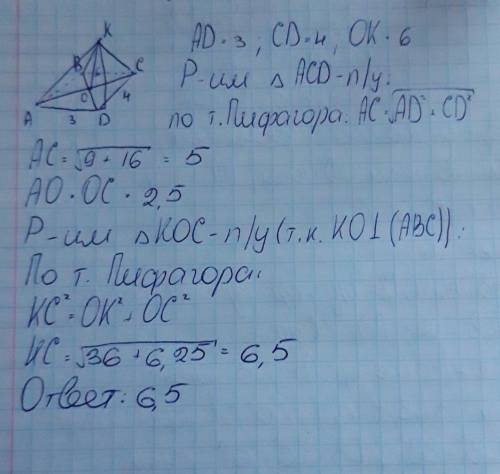 K
B
C
O
4
A
3
D
AD = 3 ; CD = 4 ; OK = 6
Р-им △ ACD - п/у.
по т. Пифагора: AC = √AD² + CD²
AC = √9 + 16 = 5
AO = OC = 2,5
Р-им △ KOC - п/у (т.к. KO ⊥ (ABC)).:
По т. Пифагора:
KC² = OK² + OC²
KC = √36 + 6,25 = 6,5
Ответ: 6,5